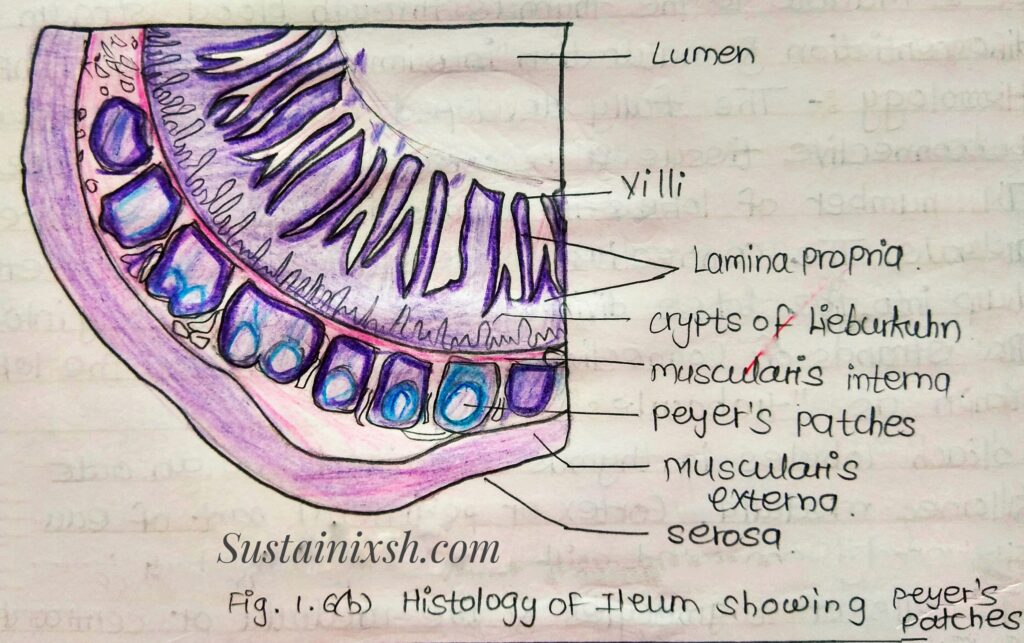 Lumen
Villi
Lamina propria.
crypts of Lieburkuhn
muscularis interna
peyer's patches
muscularis
externa.
serosa
Sustainixsh.com
Fig. 1.6(b) Histology of Ileum showing peyer's
patches